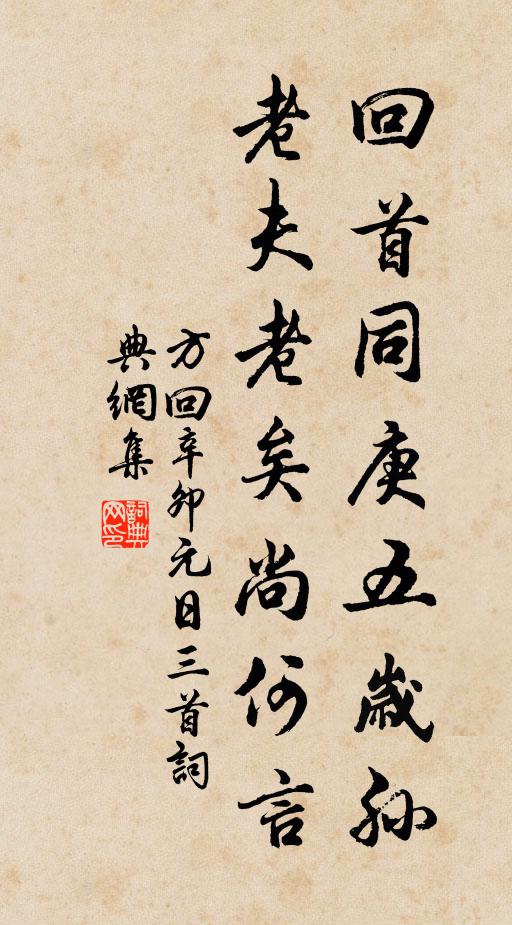 回首同庚五歲孫
老夫老矣尚何言
方回辛卯元日三首詞
典網集
詞典网印